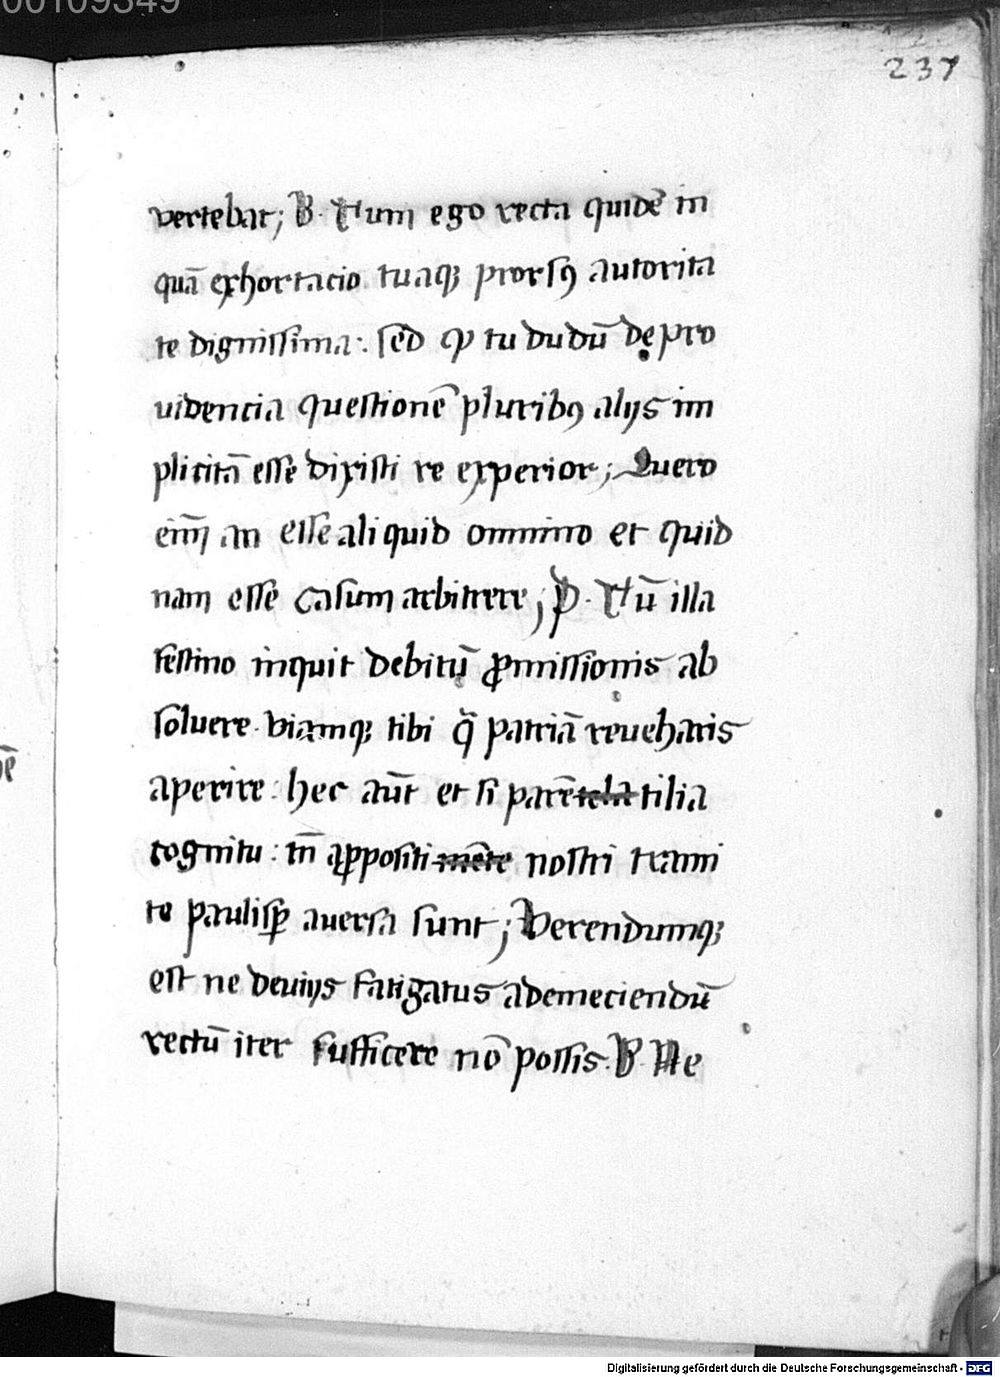 00109349
237
vertebat; B. Tum ego recta quidē in
quā exhortacio tuaqꝫ prorsꝯ autorita
te dignissima: sed ꝙ tu dudū de pro
uidencia questionē pluribꝯ alijs im
plicitā esse dixisti re experior; Quero
eīm an esse aliquid omnino et quid
nam esse casum arbitrere; P. Tū illa
festino inquit debitū ꝓmissionis ab
soluere viamqꝫ tibi q̄ patriā reueharis
aperire: hec aūt et si parētela tilia
cognitu: tn̄ aꝓpositi mēte nostri trami
te paulisꝑ auersa sunt; Verendumqꝫ
est ne deuijs fatigatus ademeciendū
rectū iter sufficere nō possis. B Ne
Digitalisierung gefördert durch die Deutsche Forschungsgemeinschaft - DFG